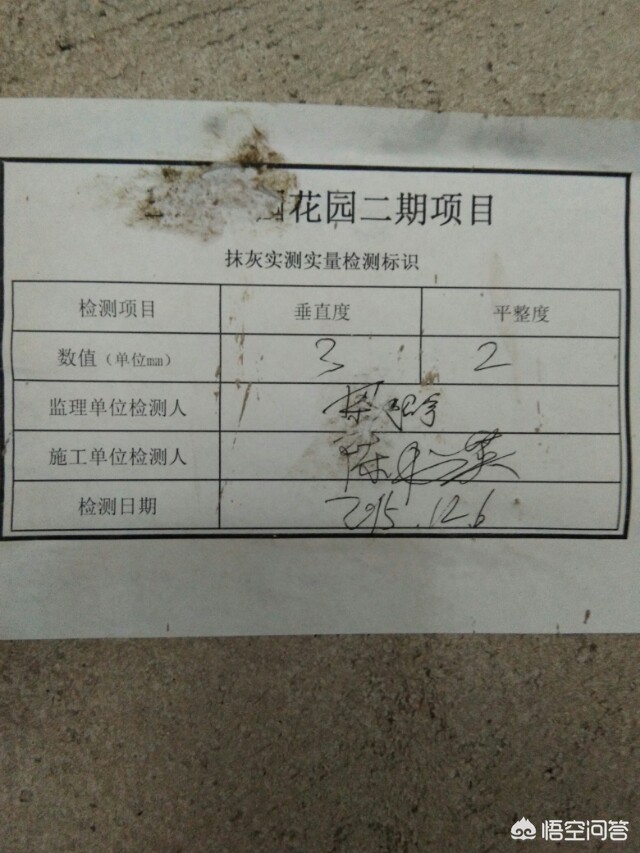 花园二期项目
抹灰实测实量检测标识
检测项目 垂直度 平整度
数值（单位mm） 3 2
监理单位检测人
施工单位检测人 陈
检测日期 2015.12.6
悟空问答